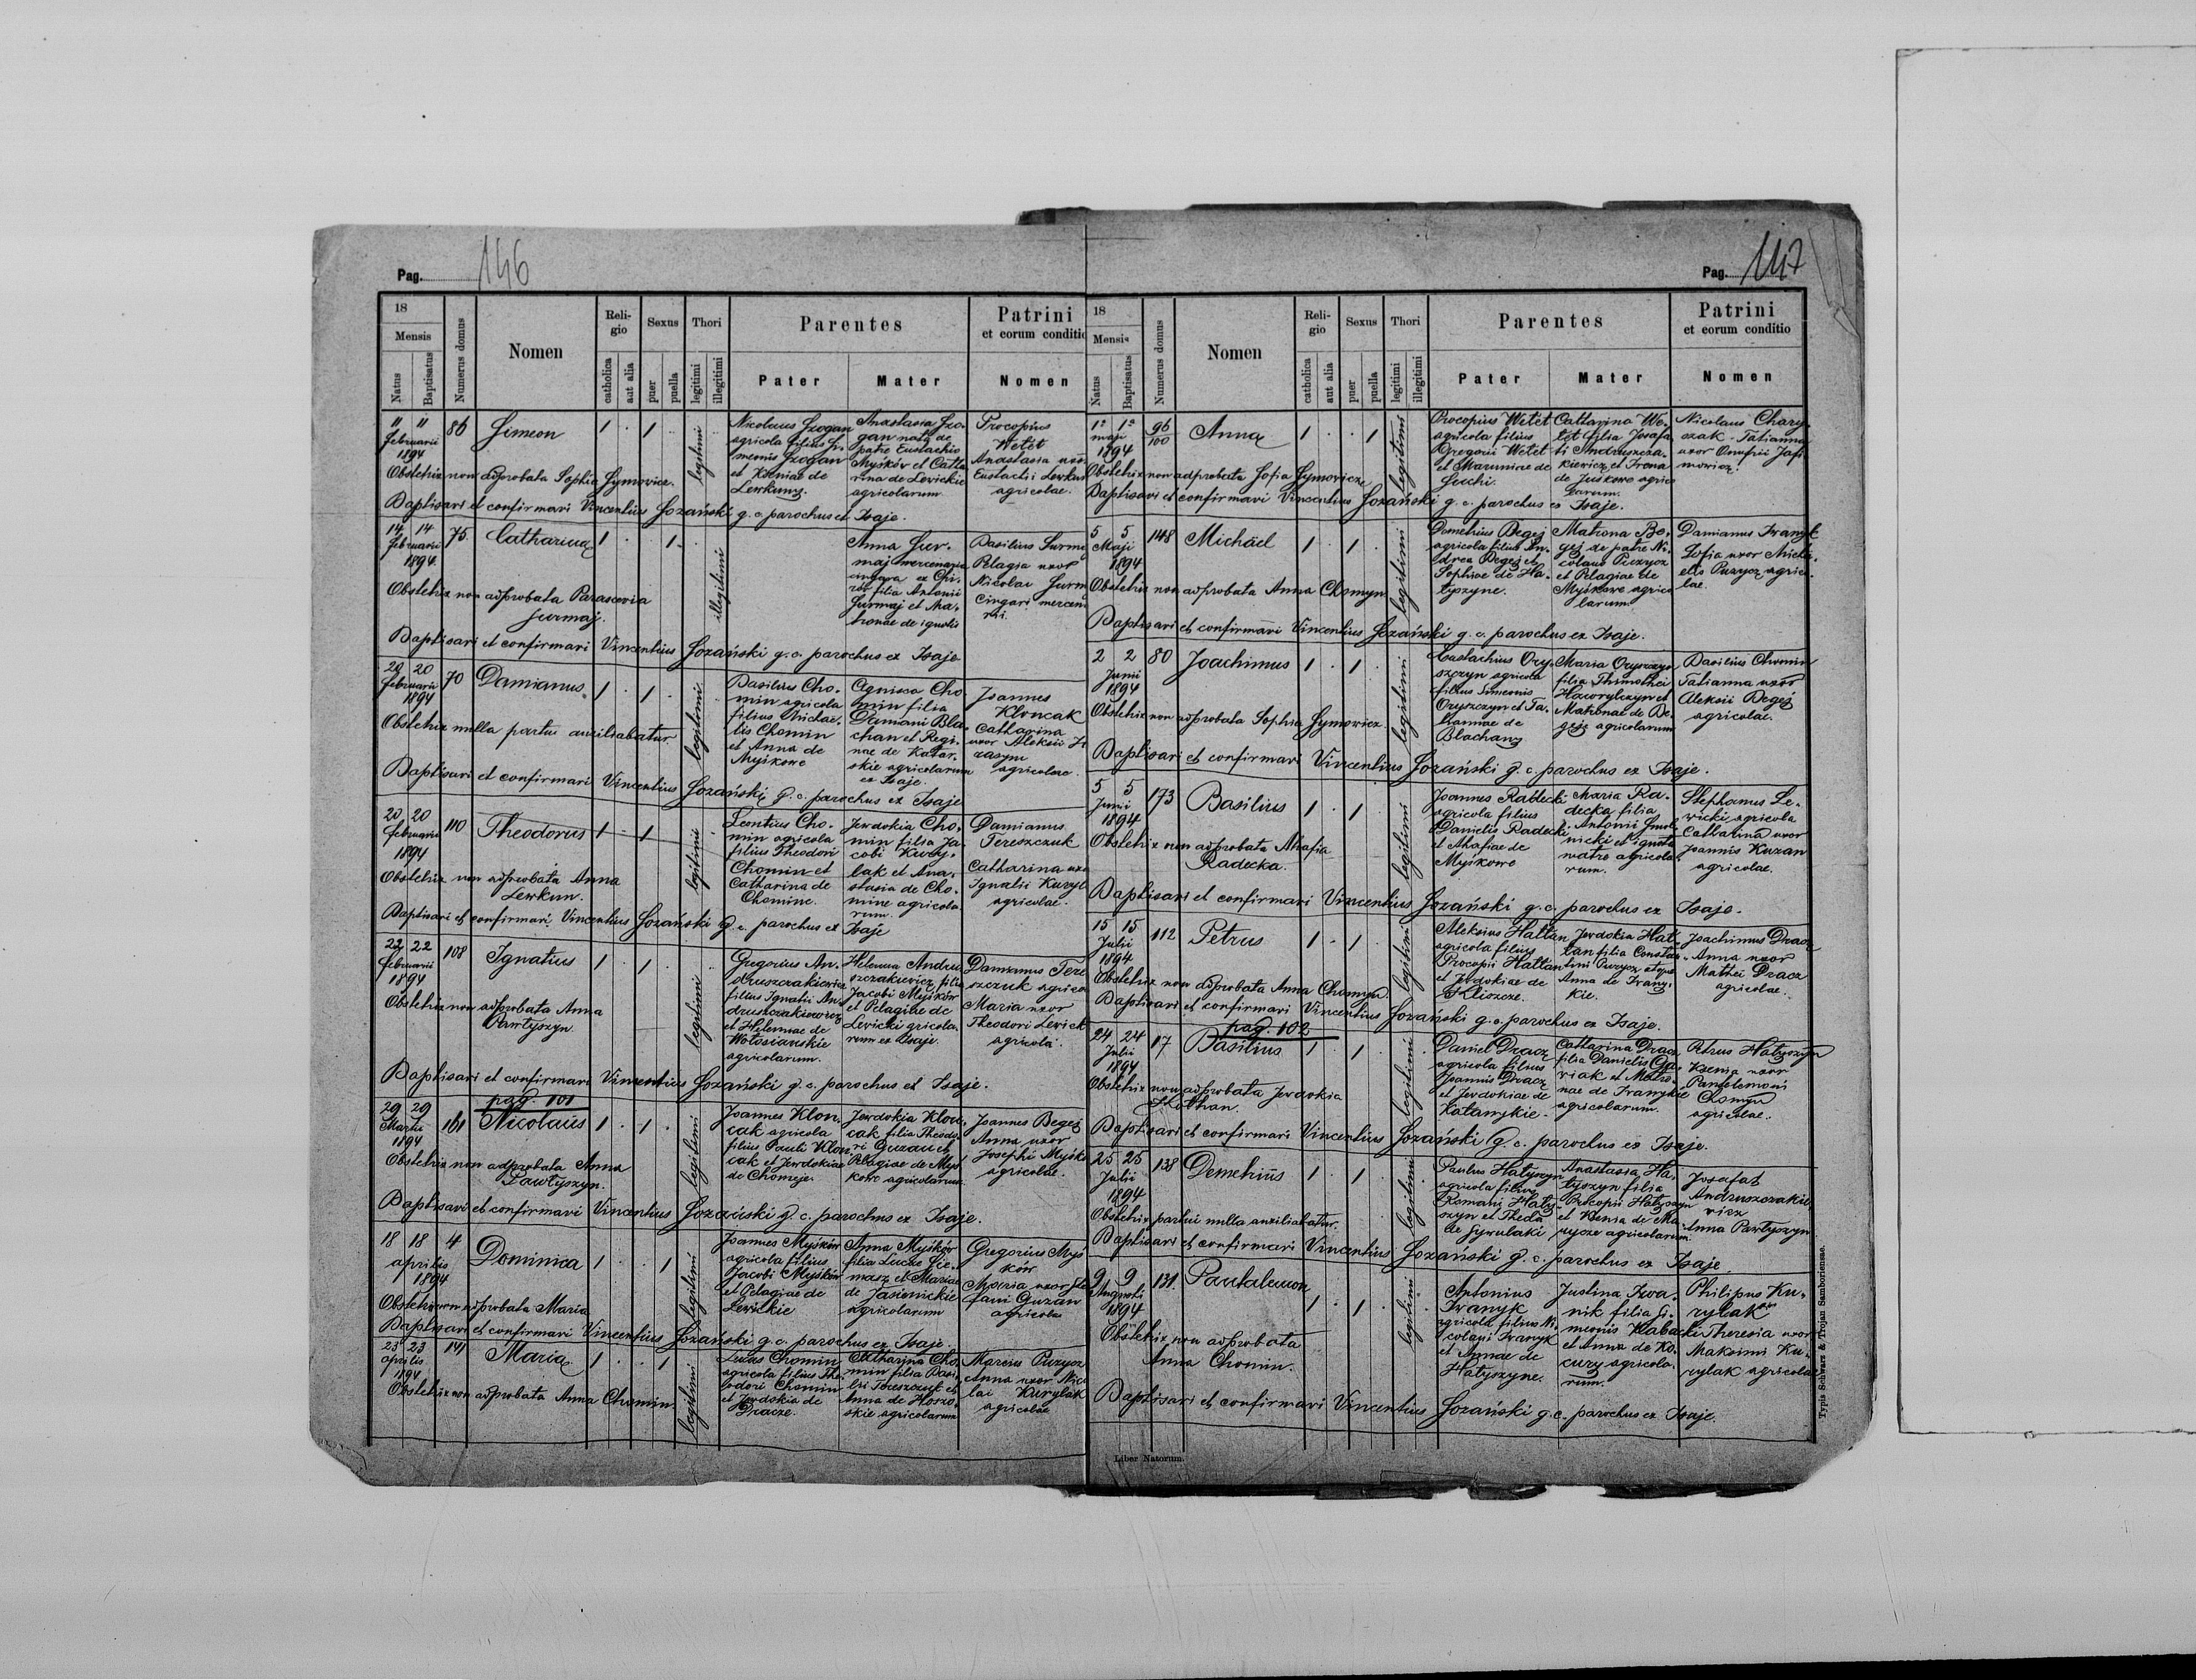 Pag. 146
18
Mensis
Natus
Baptisatus
Numerus domus
Nomen
Religio
catholica
aut alia
Sexus
puer
puella
Thori
legitimi
illegitimi
Parentes
Pater
Mater
Patrini
et eorum conditio
Nomen
11 11
Februarii
1894
86
Simeon
1 . 1 .
legitimi
Nicolaus Szogan
agricola filius Si-
meonis Szogan
et Kseniae de
Lewkuny.
Anastasia Szo-
gan nata de
patre Eustachio
Myśków et Catha
rina de Levickie
agricolarum
Procopius
Wetét
Anastasia uxor
Eustachii Lewkun
agricolae.
Obstetrix non adprobata Sophia Symowicz.
Baptisavi et confirmavi Vincentius Łozański g. c. parochus ex Isaje.
14 14
Februarii
1894
75
Catharina
1 . . 1
illegitimi
Anna Sur-
maj mercenaria
filia Antonii
Surmaj et Ma-
tronae de ignotis
Basilius Surmaj
Pelagia uxor
Nicolai Surm
Cingari mercena
rii.
Obstetrix non adprobata Parascevia
Surmaj.
Baptisavi et confirmavi Vincentius Łozański g. c. parochus ex Isaje
20 20
Februarii
1894
70
Damianus
1 . 1 .
legitimi
Basilius Cho-
min agricola
filius Michae-
lis Chomin
et Anna de
Myśkowe
Agnissa Cho
min filia
Damiani Bla-
chan et Regi-
nae de Katar-
skie agricolarum
ex Isaje
Joannes
Kloncak
Catharina
uxor Aleksii
agricolae.
Obstetrix nulla partui auxiliabatur
Baptisavi et confirmavi Vincentius Łozański g. c. parochus ex Isaje
20 20
Februarii
1894
110
Theodorus
1 . 1 .
legitimi
Leontius Cho-
min agricola
filius Theodori
Chomin et
Catharina de
Chomine.
Jewdokia Cho-
min filia Ja-
cobi Kury-
lak et Ana-
stasia de Cho-
mine agricola-
rum.
Damianus
Tereszczuk
Catharina uxor
Ignatii Kuryl
agricolae.
Obstetrix non adprobata Anna
Lewkun.
Baptisavi et confirmavi Vincentius Łozański g. c. parochus ex Isaje
22 22
Februarii
1894
108
Ignatius
1 . 1 .
legitimi
Gregorius An-
druszczakiewicz
filius Ignatii An-
druszczakiewicz
et Helennae de
Wołosianskie
agricolarum.
Helenna Andru
szczakiewicz filia
Jacobi Myśków
et Pelagiae de
Levicki agricola
rum ex Isaje.
Damianus Tere
szczuk agricola
Maria uxor
Theodori Levick
agricola.
Obstetrix non adprobata Anna
Pawtyszyn.
Baptisavi et confirmavi Vincentius Łozański g. c. parochus ex Isaje.
pag. 101
29 29
Martii
1894
161
Nicolaus
1 . 1 .
legitimi
Joannes Klon-
cak agricola
filius Pauli Klon
cak et Jewdokiae
de Chomeje.
Jewdokia Klon-
cak filia Theodo-
ri
Pelagiae de Myś
kowe agricolarum
Joannes Begej
Anna uxor
Josephi Myśk
agricolae.
Obstetrix non adprobata Anna
Pawtyszyn.
Baptisavi et confirmavi Vincentius Łozański g. c. parochus ex Isaje.
18 18
aprilis
1894
4
Dominica
1 . . 1
legitimi
Joannes Myśków
agricola filius
Jacobi Myśków
et Pelagiae de
Levickie
Anna Myśków
filia Lucae Sie-
masz et Mariae
de Jasienickie
agricolarum
Gregorius Myś
ków
Maria uxor Ste
fani Guzan
agricola
Obstetrix non adprobata Maria
Baptisavi et confirmavi Vincentius Łozański g. c. parochus ex Isaje.
23 23
aprilis
1894
141
Maria
1 . . 1
legitimi
Lucas Chomin
agricola filius The-
odori Chomin
et Jewdokia de
Dracze.
Catharina Cho-
min filia Basi-
lii Tereszczuk et
Anna de Hoszo-
skie agricolarum
Marcus Puzycz
Anna uxor Nico
lai Kurylak
agricolae
Obstetrix non adprobata Anna Chomin.
Pag. 147
18
Mensis
Natus
Baptisatus
Numerus domus
Nomen
Religio
catholica
aut alia
Sexus
puer
puella
Thori
legitimi
illegitimi
Parentes
Pater
Mater
Patrini
et eorum conditio
Nomen
12 12
maji
1894
96
100
Anna
1 . . 1
legitimi
Procopius Wetét
agricola filius
Gregorii Wetét
et Marunine de
Suchi.
Catharina We-
tét filia Josafa
ti Andruszcza-
kiewicz et Irena
de Juśkowe agrico
larum.
Nicolaus Chary-
szak - Tatianna
uxor Onufrii
mowicz.
Obstetrix non adprobata Sofia Symowicz
Baptisavi et confirmavi Vincentius Łozański g. c. parochus ex Isaje.
5 5
Maji
1894
148
Michäel
1 . 1 .
legitimi
Demetrius Begej
agricola filius An-
drea Begej et
Sophiae de Ha-
tyszyne.
Matrona Be-
gej de patre Ni-
colaus Puzycz
et Pelagiae de
Myśkowe agrico
larum.
Damianus Iranyk
Zofia uxor Micha-
elis Puzycz agrico-
lae.
Obstetrix non adprobata Anna Chomyn
Baptisavi et confirmavi Vincentius Łozański g. c. parochus ex Isaje.
2 2
Junii
1894
80
Joachimus
1 . 1 .
legitimi
Eustachius Ory-
szczyn agricola
filius Simeonis
Oryszczyn et Ta-
tiannae de
Blachany
Maria Oryszczyn
filia Thimothei
Haworylczyn et
Matronae de Be-
geje agricolarum
Basilius Chomin
Tatianna uxor
Aleksii Begej
agricolae.
Obstetrix non adprobata Sophia Symowicz
Baptisavi et confirmavi Vincentius Łozański g. c. parochus ex Isaje.
5 5
Junii
1894
173
Basilius
1 . 1 .
legitimi
Joannes Radecki
agricola filius
Danielis Radecki
et Ahafiae de
Myśkowe
Maria Ra-
decka filia
Antonii
nicki et ignota
matre agricola
rum.
Stephanus Le-
wicki agricola
Catharina uxor
Joannis Kuzan
agricolae.
Obstetrix non adprobata Ahafia
Radecka.
Baptisavi et confirmavi Vincentius Łozański g. c. parochus ex Isaje.
15 15
Julii
1894
112
Petrus
1 . 1 .
legitimi
Aleksius Hattan
agricola filius
Procopii Hattan
et Jewdokiae de
Kliszcze.
Jewdokia Hat-
tan filia Constan-
tini Puzycz atque
Anna de Irany-
kie.
Joachimus Dracz
Anna uxor
Mathei Dracz
agricolae.
Obstetrix non adprobata Anna Chomyn.
Baptisavi et confirmavi Vincentius Łozański g. c. parochus ex Isaje.
pag. 102
24 24
Julii
1894
117
Basilius
1 . 1 .
legitimi
Daniel Dracz
agricola filius
Joannis Dracz
et Jewdokiae de
Katanykie.
Catharina Dracz
filia Danielis Ga-
wriak et Matro-
nae de Iranykie
agricolarum.
Petrus Hatyszyn
Ksenia uxor
Pantelemoni
Chomyn
agricolae.
Obstetrix non adprobata Jewdokia
Hottan.
Baptisavi et confirmavi Vincentius Łozański g. c. parochus ex Isaje.
25 25
Julii
1894
138
Demetrius
1 . 1 .
legitimi
Paulus Hatyszyn
agricola filius
Romani Haty-
szyn et Thecla
de Gyrulaki
Anastasia Ha-
tyszyn filia
Procopii Hatyszyn
et Ksenia de Ma-
agricolarum.
Josafat
Andruszczakie
wicz
Anna Pawtyszyn
Obstetrix partui nulla auxiliabatur.
Baptisavi et confirmavi Vincentius Łozański g. c. parochus ex Isaje.
9 9
Augusti
1894
131.
Pantalemon
1 . 1 .
legitimi
Antonius
Iranyk
agricola filius Ni-
colayi Iranyk
et Annae de
Hatyszyne.
Justina Iwa-
nik filia Si-
meonis Klabacki
et Anna de Ko-
cury agricola-
rum.
Philipus Ku-
rylak
Theresia uxor
Maksimi Ku-
rylak agricolae
Obstetrix non adprobata
Anna Chomin.
Baptisavi et confirmavi Vincentius Łozański g. c. parochus ex Isaje.
Liber Natorum.
Typis Schwarz & Trojan Samboriense.